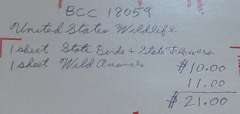 BCC 18059
United States Wildlife
1 sheet State Birds + State Flowers
1 sheet Wild Animals $10.00
11.00
$21.00